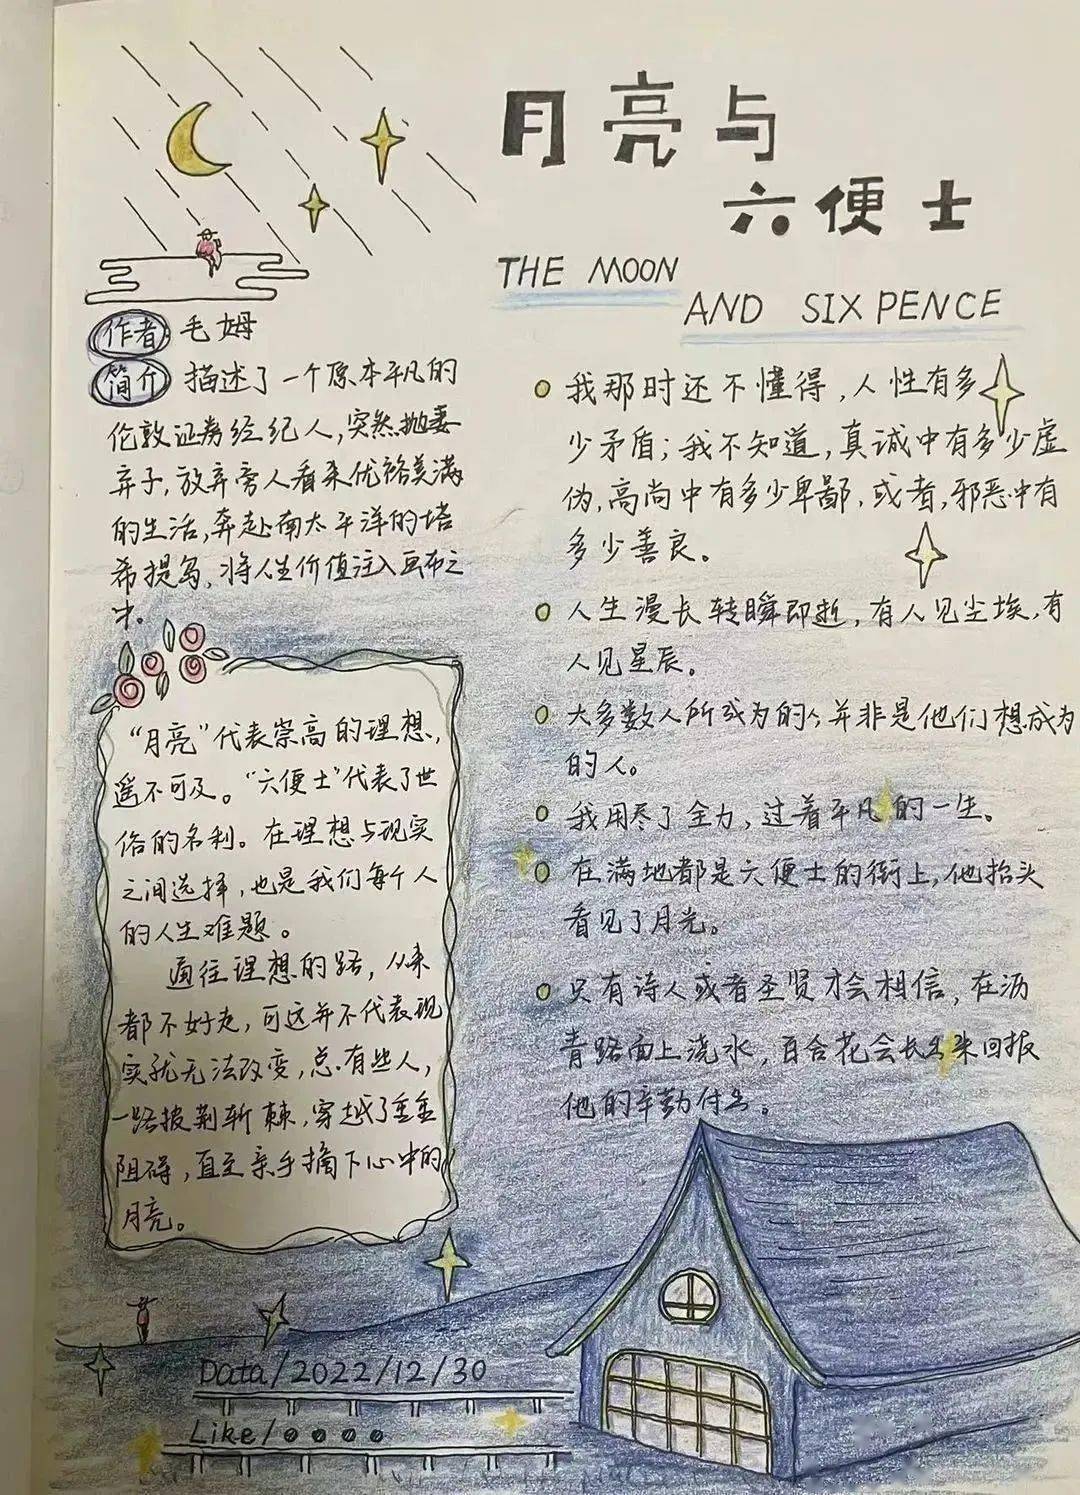 月亮与
六便士
THE MOON
AND SIX PENCE
作者 毛姆
简介 描述了一个原本平凡的
伦敦证券经纪人,突然抛妻
弃子,放弃旁人看来优裕美满
的生活,奔赴南太平洋的塔
希提岛,将人生价值注入画布之
中.
“月亮”代表崇高的理想,
遥不可及。“六便士”代表了世
俗的名利。在理想与现实
之间选择,也是我们每个人
的人生难题。
通往理想的路,从来
都不好走,可这并不代表现
实就无法改变,总有些人,
一路披荆斩棘,穿越了重重
阻碍,直至亲手摘下心中的
月亮。
我那时还不懂得,人性有多
少矛盾;我不知道,真诚中有多少虚
伪,高尚中有多少卑鄙,或者,邪恶中有
多少善良。
人生漫长转瞬即逝,有人见尘埃,有
人见星辰。
大多数人所成为的人,并非是他们想成为
的人。
我用尽了全力,过着平凡的一生。
在满地都是六便士的街上,他抬头
看见了月光。
只有诗人或者圣贤才会相信,在沥
青路面上浇水,百合花会长出来回报
他的辛勤付出。
Data/2022/12/30
Like/